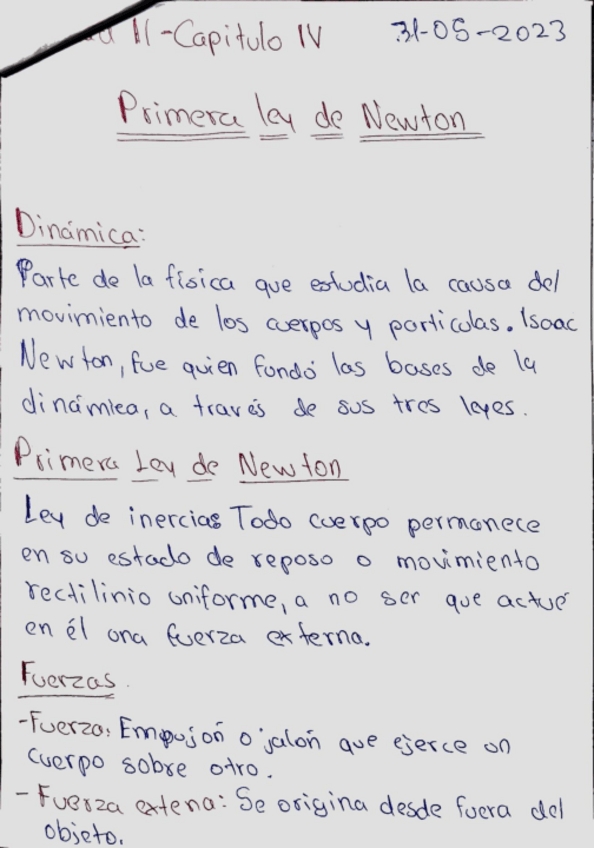 II-Capitulo IV 31-05-2023
Primera ley de Newton
Dinámica:
Parte de la física que estudia la causa del
movimiento de los cuerpos y particulas. Isaac
Newton, fue quien fundó las bases de la
dinámica, a través de sus tres leyes.
Primera Ley de Newton
Ley de inercias Todo cuerpo permanece
en su estado de reposo o movimiento
rectilinio uniforme, a no ser que actué
en él una fuerza externa.
Fuerzas.
-Fuerza: Empujoń o jaloń que ejerce un
cuerpo sobre otro.
- Fuerza extena: Se origina desde fuera del
objeto.